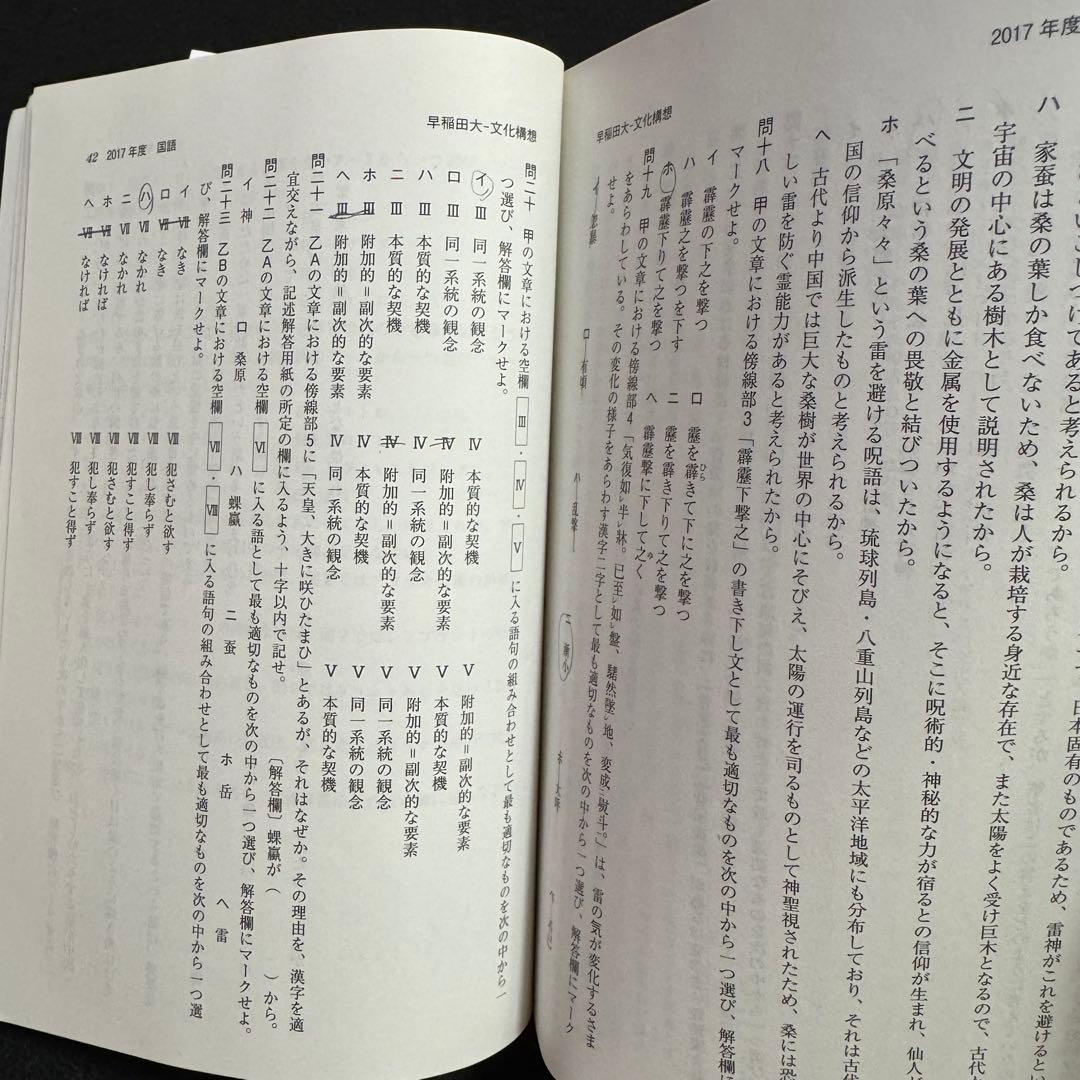 2017年度
早稲田大-文化構想
ハ 家蚕は桑の葉しか食べないため、桑は人が栽培する身近な存在で、また太陽をよく受け巨木となるので、古代
宇宙の中心にある樹木として説明されたから。
ニ 文明の発展とともに金属を使用するようになると、そこに呪術的・神秘的な力が宿るとの信仰が生まれ、仙人が
べるという桑の葉への畏敬と結びついたから。
ホ 「桑原々々」という雷を避ける呪語は、琉球列島・八重山列島などの太平洋地域にも分布しており、それは古代
国の信仰から派生したものと考えられるから。
ヘ 古代より中国では巨大な桑樹が世界の中心にそびえ、太陽の運行を司るものとして神聖視されたため、桑には恐
しい雷を防ぐ霊能力があると考えられたから。
問十八 甲の文章における傍線部3「霹靂下撃之」の書き下し文として最も適切なものを次の中から一つ選び、解答欄に
マークせよ。
イ 霹靂の下之を撃つ
ロ 靂を霹きて下に之を撃つ
ハ 霹靂之を撃つを下す
ニ 靂を霹き下りて之を撃つ
ホ 霹靂下りて之を撃つ
ヘ 霹靂撃に下して之く
問十九 甲の文章における傍線部4「気復如レ半レ牀。已至レ如レ盤、驣然墜レ地、変成二熨斗。」は、雷の気が変化するさま
をあらわしている。その変化の様子をあらわす漢字二字として最も適切なものを次の中から一つ選び、解答欄にマーク
せよ。
ハ 乱撃
ニ 漸小
早稲田大-文化構想
42 2017年度 国語
問二十 甲の文章における空欄 Ⅲ ・ Ⅳ ・ Ⅴ に入る語句の組み合わせとして最も適切なものを次の中から一
つ選び、解答欄にマークせよ。
イ Ⅲ 同一系統の観念 Ⅳ 本質的な契機 Ⅴ 附加的＝副次的な要素
ロ Ⅲ 同一系統の観念 Ⅳ 附加的＝副次的な要素 Ⅴ 本質的な契機
ハ Ⅲ 本質的な契機 Ⅳ 同一系統の観念 Ⅴ 附加的＝副次的な要素
ニ Ⅲ 本質的な契機 Ⅳ 附加的＝副次的な要素 Ⅴ 同一系統の観念
ホ Ⅲ 附加的＝副次的な要素 Ⅳ 本質的な契機 Ⅴ 同一系統の観念
ヘ Ⅲ 附加的＝副次的な要素 Ⅳ 同一系統の観念 Ⅴ 本質的な契機
問二十一 乙Aの文章における傍線部5に「天皇、大きに咲ひたまひ」とあるが、それはなぜか。その理由を、漢字を適
宜交えながら、記述解答用紙の所定の欄に入るよう、十字以内で記せ。
〔解答欄〕蜾蠃が（ ）から。
問二十二 乙Aの文章における空欄 Ⅵ に入る語として最も適切なものを次の中から一つ選び、解答欄にマークせよ。
イ 神 ロ 桑原 ハ 蜾蠃 ニ 蚕 ホ 岳 ヘ 雷
問二十三 乙Bの文章における空欄 Ⅶ ・ Ⅷ に入る語句の組み合わせとして最も適切なものを次の中から一つ選
び、解答欄にマークせよ。
イ Ⅶ なき Ⅷ 犯さむと欲す
ロ Ⅶ なき Ⅷ 犯し奉らず
ハ Ⅶ なかれ Ⅷ 犯すこと得ず
ニ Ⅶ なかれ Ⅷ 犯さむと欲す
ホ Ⅶ なければ Ⅷ 犯し奉らず
ヘ Ⅶ なければ Ⅷ 犯すこと得ず